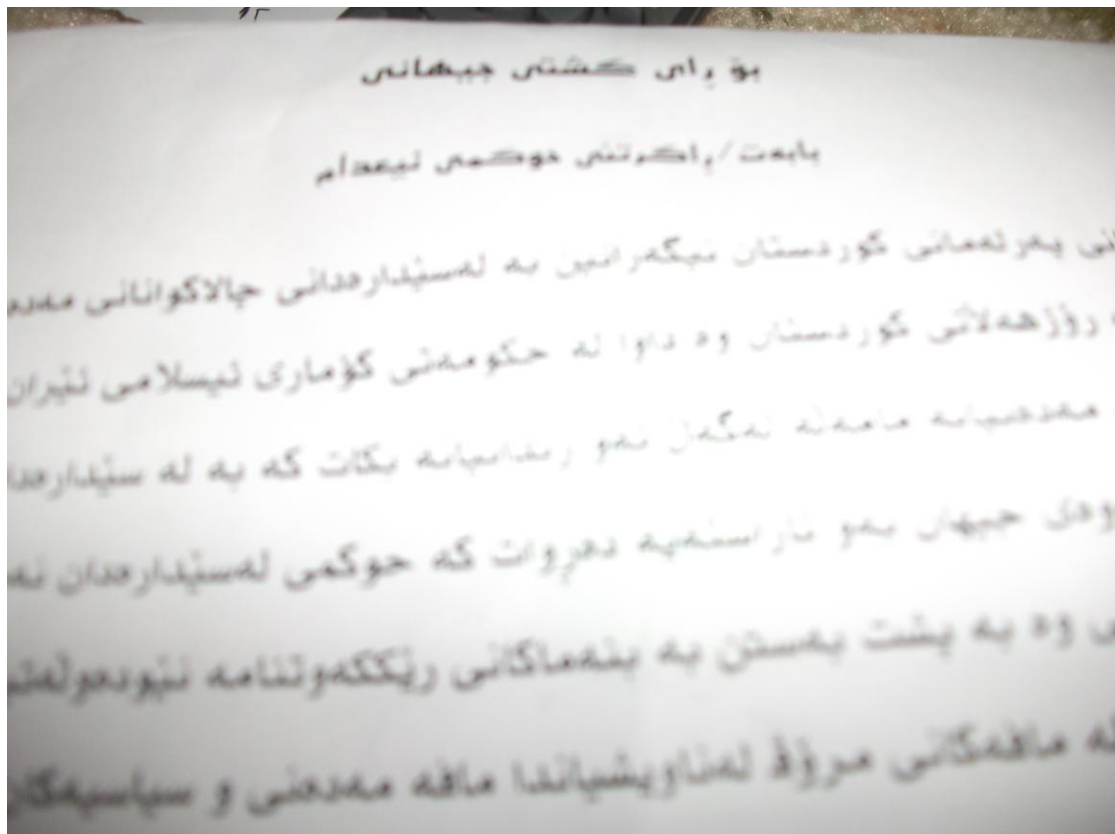 بۆ ڕای گشتی جیهانی
بابەت/ڕاگرتنی حوکمی ئیعدام
پەرلەمانی کوردستان نیگەرانین بە لەسێدارەدانی چالاکوانانی
رۆژهەڵاتی کوردستان وە داوا لە حکومەتی کۆماری ئیسلامی ئێران
مەدەنیانە مامەڵە لەگەل ئەو زیندانیانە بکات کە بە لە
جیهان بەو ئاراستەیە دەڕوات کە حوکمی لەسێدارەدان
وە بە پشت بەستن بە بنەماکانی رێککەوتنامە
مافەکانی مرۆڤ لەناویشیاندا مافە مەدەنی و